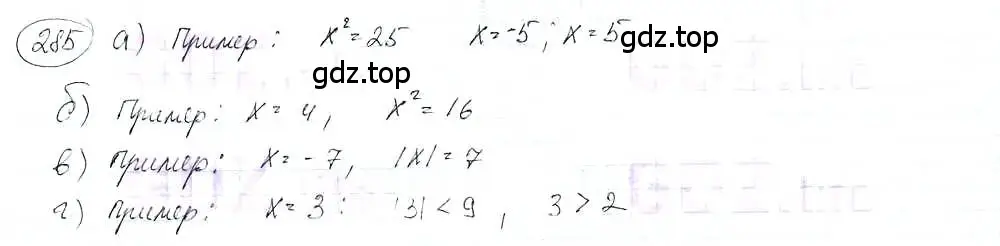 285 а) Пример: x²=25 x=-5; x=5
gdz.top
gdz.top
б) Пример: x=4, x²=16
в) Пример: x=-7, |x|=7
gdz.top
г) Пример: x=3: |3|<9, 3>2
gdz.top